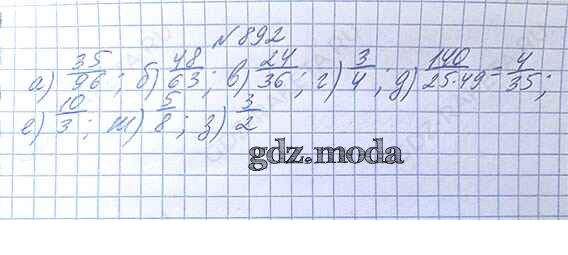 №892
а) 35/96; б) 48/63; в) 24/36; г) 3/4; д) 140/25·49 = 4/35;
е) 10/3; ж) 5/8; з) 3/2
gdz.moda